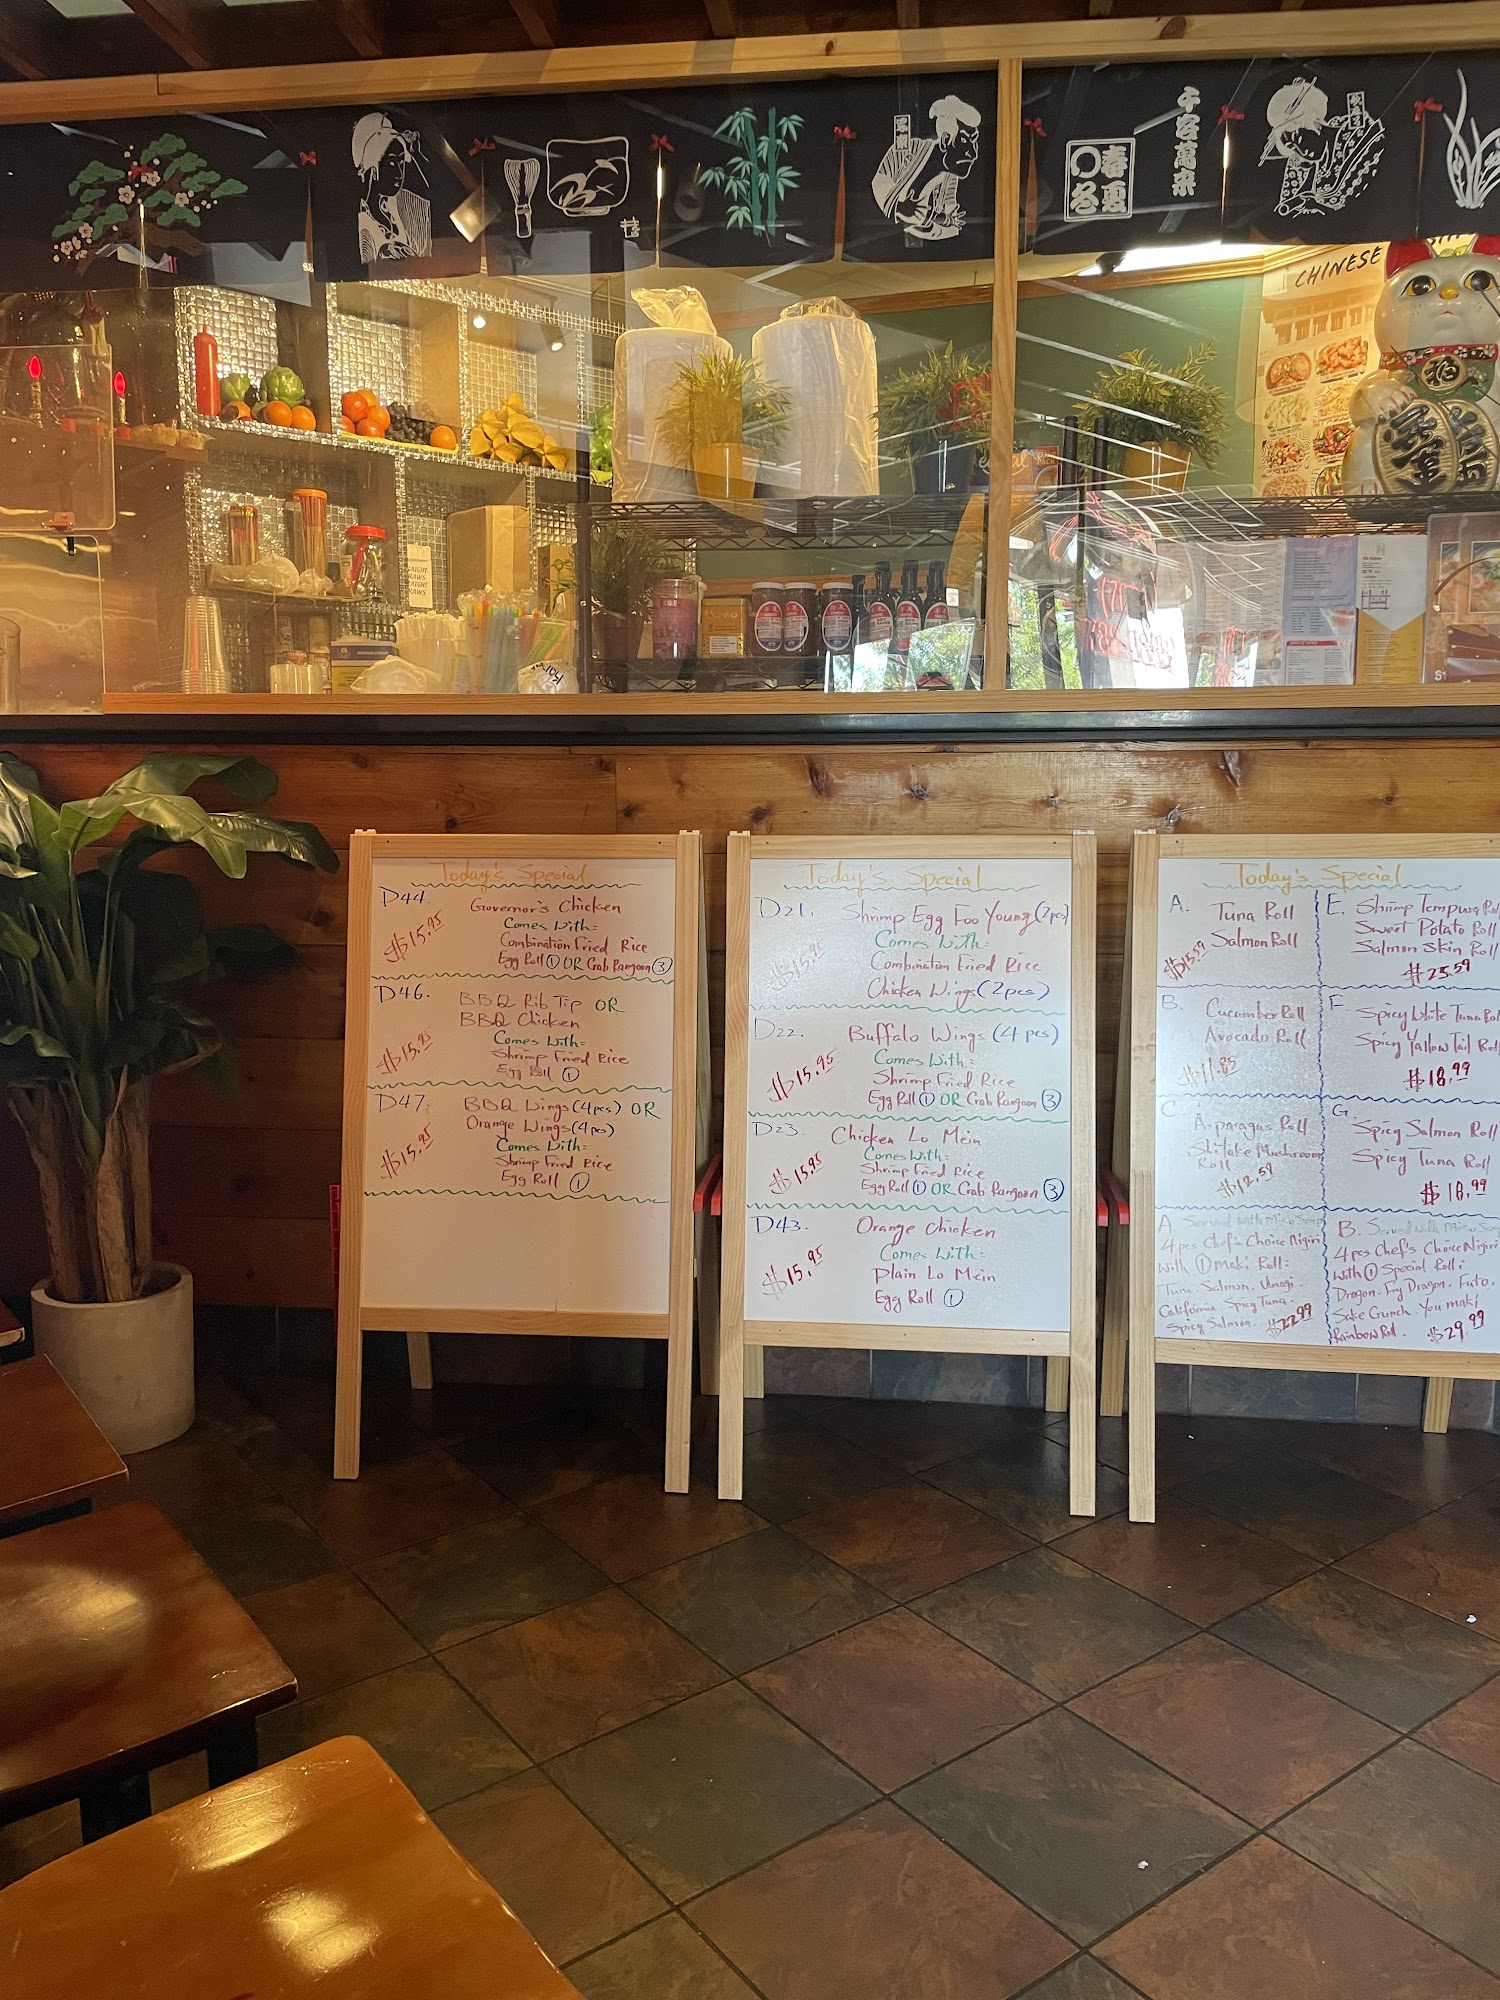 千客萬来
春夏
冬
CHINESE
福
AIGHT
RAWS
AIGHT
RAWS
Today's Special
D44.
Governor's Chicken
$15.95
Comes With:
Combination Fried Rice
Egg Roll ① OR Crab Rangoon ③
D46.
BBQ Rib Tip OR
BBQ Chicken
$15.95
Comes With:
Shrimp Fried Rice
Egg Roll ①
D47.
BBQ Wings (4pcs) OR
Orange Wings (4pcs)
$15.95
Comes With:
Shrimp Fried Rice
Egg Roll ①
Today's Special
D21. Shrimp Egg Foo Young (2pcs)
$15.95
Comes With:
Combination Fried Rice
Chicken Wings (2pcs)
D22. Buffalo Wings (4 pcs)
$15.95
Comes With:
Shrimp Fried Rice
Egg Roll ① OR Crab Rangoon ③
D23. Chicken Lo Mein
$15.95
Comes With:
Shrimp Fried Rice
Egg Roll ① OR Crab Rangoon ③
D43. Orange Chicken
$15.95
Comes With:
Plain Lo Mein
Egg Roll ①
Today's Special
A. Tuna Roll
Salmon Roll
$15.59
B. Cucumber Roll
Avocado Roll
$11.85
C. Asparagus Roll
Shitake Mushroom
Roll
$12.59
A Served with Miso Soup
4 pcs Chef's Choice Nigiri
with ① maki Roll:
Tuna. Salmon. Unagi.
California. Spicy Tuna.
Spicy Salmon. $22.99
E. Shrimp Tempura Roll
Sweet Potato Roll
Salmon Skin Roll
$23.59
F Spicy White Tuna Roll
Spicy Yallow Tail Roll
$18.99
G. Spicy Salmon Roll
Spicy Tuna Roll
$18.99
B. Served with Miso Soup
4 pcs Chef's Choice Nigiri
with ① Special Roll:
Dragon. Fry Dragon. Futo.
Sake Crunch. You maki
Rainbow Roll. $29.99